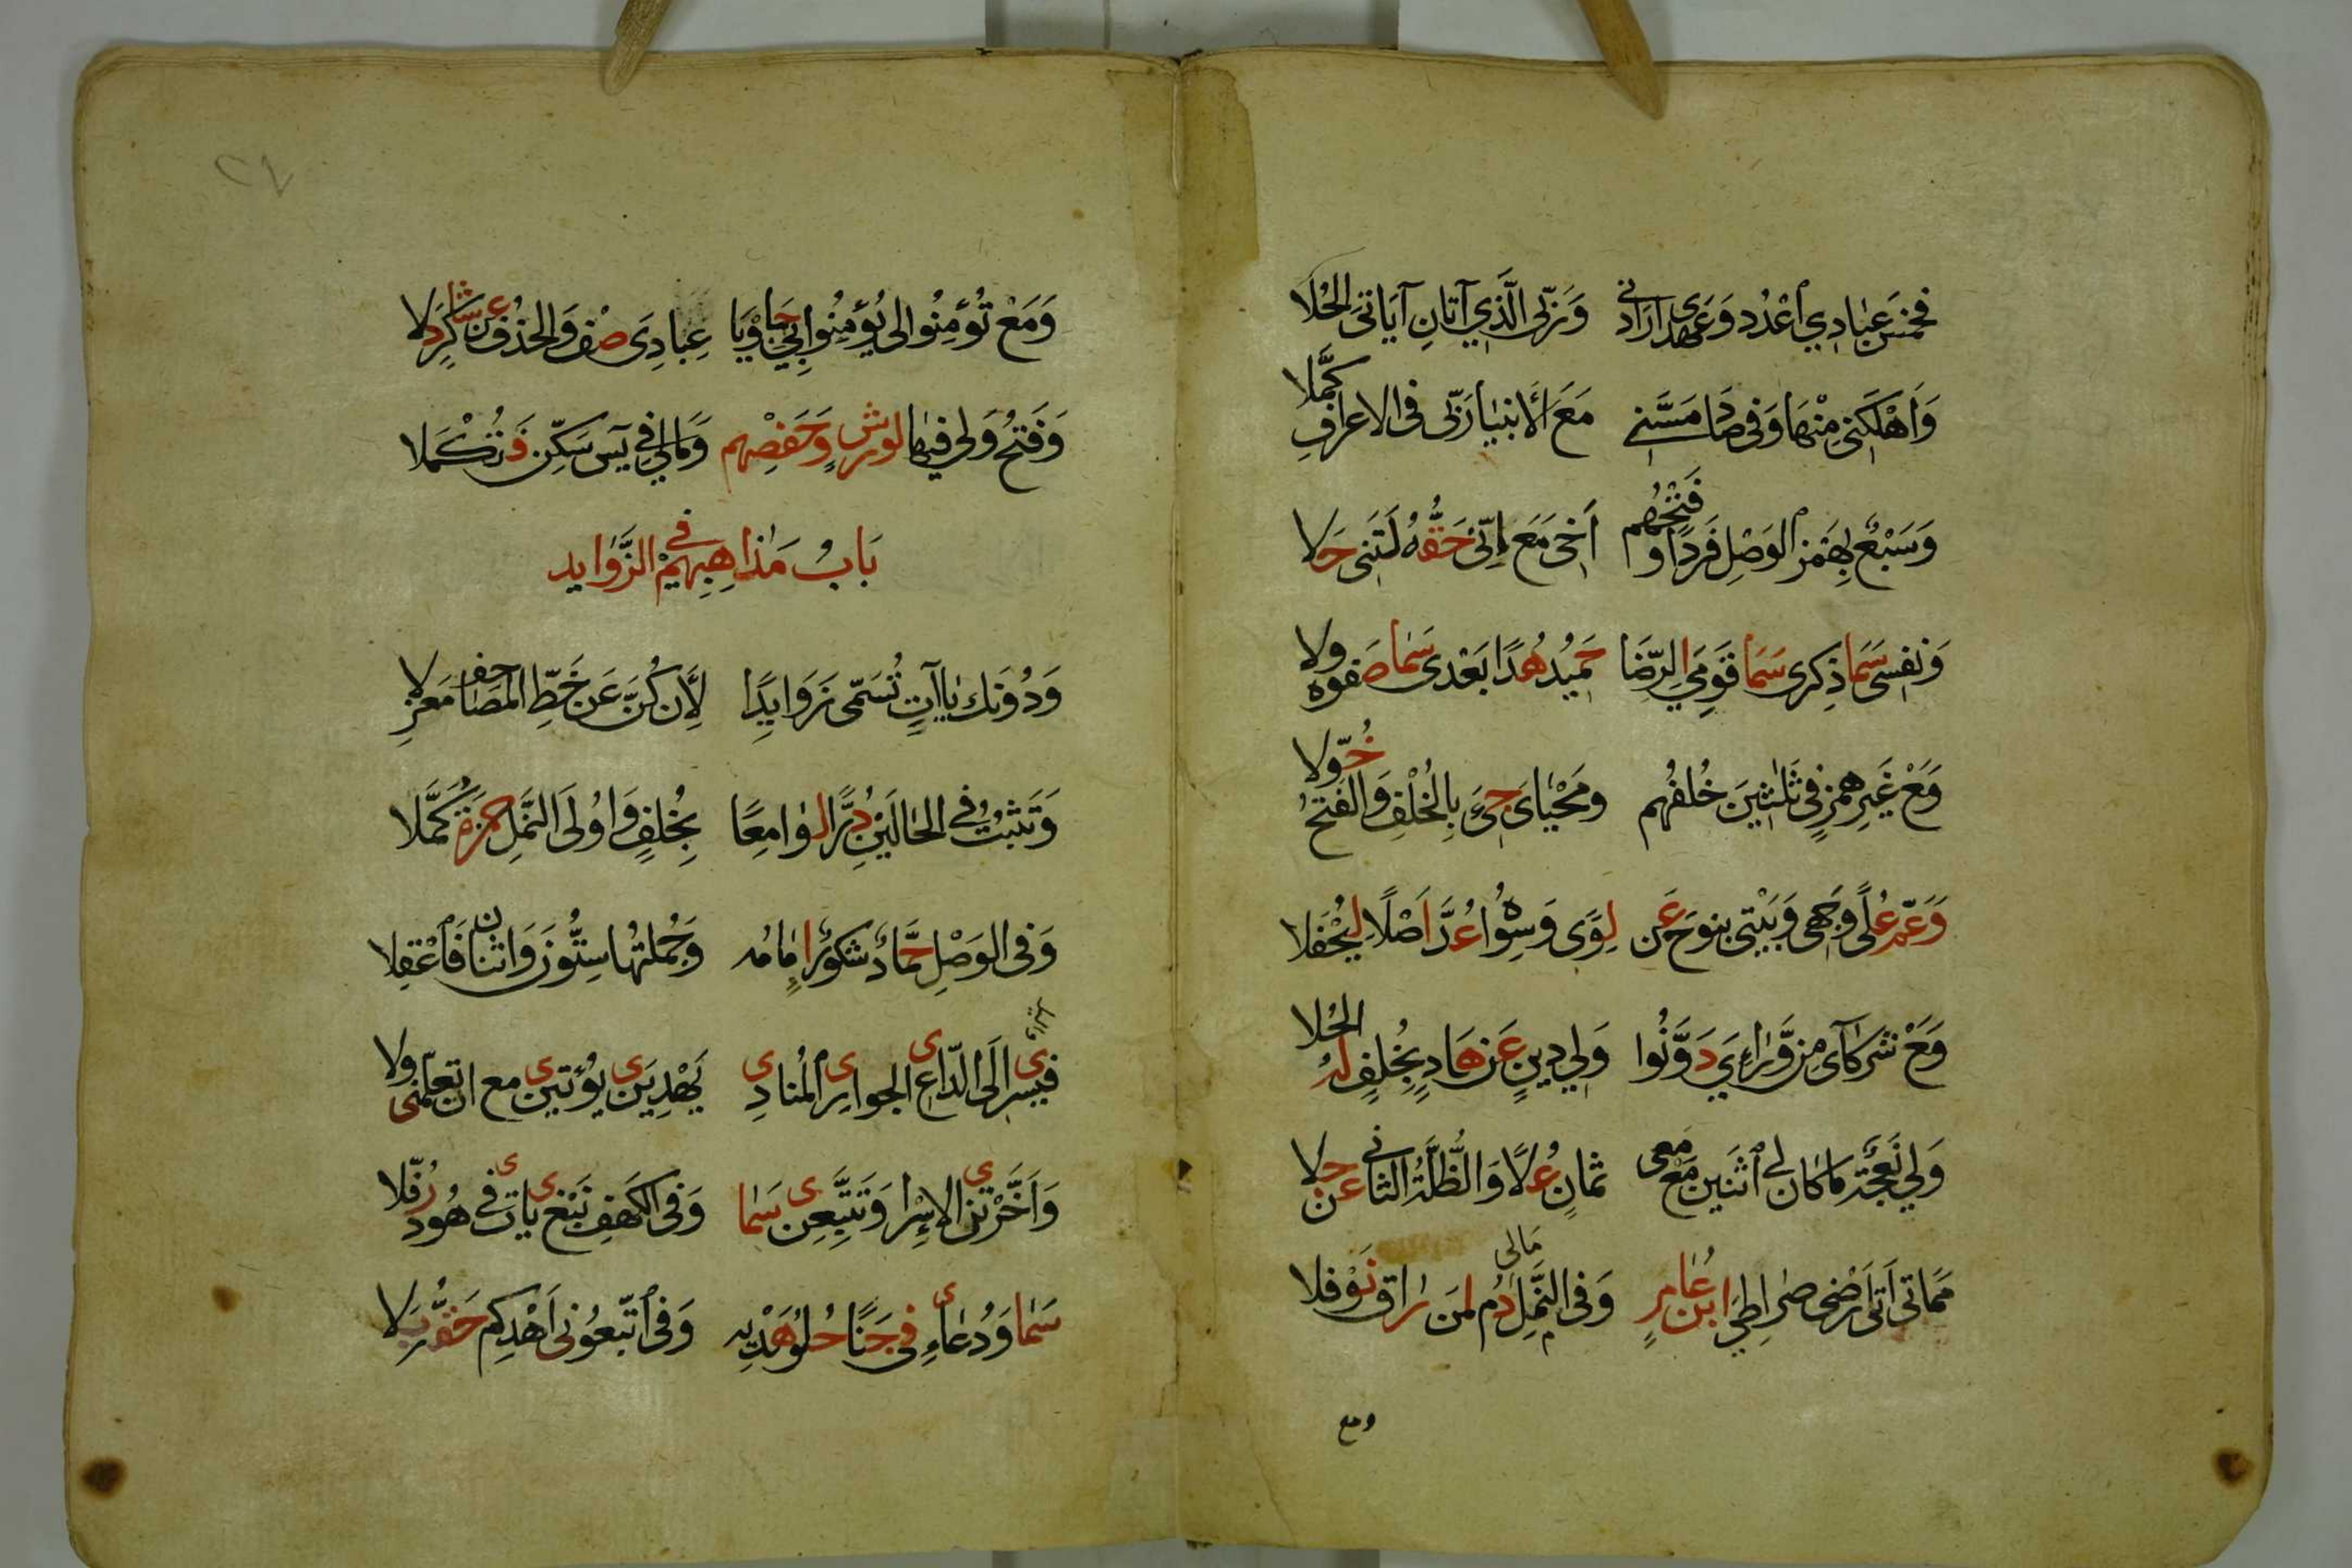 فخمس عبادي اعدد وعهدي ارادني وربى الذي آتان آياتى الحلا
وَاَهْلَكَنِى مِنْهَا وَفى صَاد مَسَّنِى مَعَ الاَنبيا رَبّى فى الاعرافِ كَمَّلا
وَسَبْعٌ بِهَمْزِ الوَصْلِ فَردًا وفَتْحُهُم اَخى مَعَ اِنّى حَقُّهُ لَيتَنِى حَلا
وَنفسى سَمَا ذِكرى سَمَا قَومِي الرِّضَا حَمِيدُ هُدًا بَعْدى سَمَا صَفوه ولا
وَمَعْ غَيرِ همزٍ فى ثَلثينَ خُلفُهُم ومَحْيَاىَ جىءَ بِالخُلْفِ وَالفتحُ خُوّلا
وَعَمَّ عُلًى وَجْهى وَبَيْتى بنوحَ عَن لِوًى وَسِوَاهُ عُدَّ اَصْلًا لِيُحْفَلا
وَمَعْ شركآى مِن وَّرَاءِى دَوَّنُوا وَلى دِينِ عَن هَادٍ بِخُلفٍ لَهُ الحُلا
وَلى نَعجَةٌ مَا كان لى اثنَينِ مَعْ مَعى ثمانٍ عُلًا وَالظُّلَّةُ الثانى عَن جِلا
مَمَاتى اَتَى اَرْضى صراطِي ابن عَامرٍ وَفى النَّملِ مَالى دُم لمَن رَاقَ نَوْفلا
ومع
٢٧
وَمَعْ تُؤمِنُوا لى يُؤمِنُوا بِي جَا وَيَا عِبادِىَ صْف وَالحذف عَن شَاكِرٍ دَلا
وَفَتْحُ وَلى فيهَا لورشٍ وَحَفصِهم وَمَالى فى يس سَكِّن فَتُكْمَلا
بَابُ مَذاهِبِهِمْ في الزَّوايد
وَدُونَك يَاآتٍ تُسَمّى زَوَايدًا لِأَن كُنَّ عَن خَطِّ المَصَاحف مَعزِلا
وَتَثبُتُ فى الحَالَينِ دُرًّا لوَامِعًا بِخُلفٍ وَاوُلَى النَّملِ حمزة كَمَّلا
وَفى الوَصْلِ حَمَّادٌ شكورٌ اِمَامُه وَجُملتُها سِتُّونَ وَاثنان فَاعْقِلا
فيسرى الَى الدّاعى الجوارى المُنادى يَهْدِيَن يؤتيَن مع ان تعلّمنى ولا
وَاَخَّرْتنى الاِسْرا وَتَتَّبِعَن سَمَا وَفى الكَهفِ نَبْغى يات فى هُود رُفّلا
سَمَا وَدُعاءى فى جَنًا حُلْوُ هَدْيِه وَفى اتّبعُونى اَهْدِكُم حَقُّه بَلا